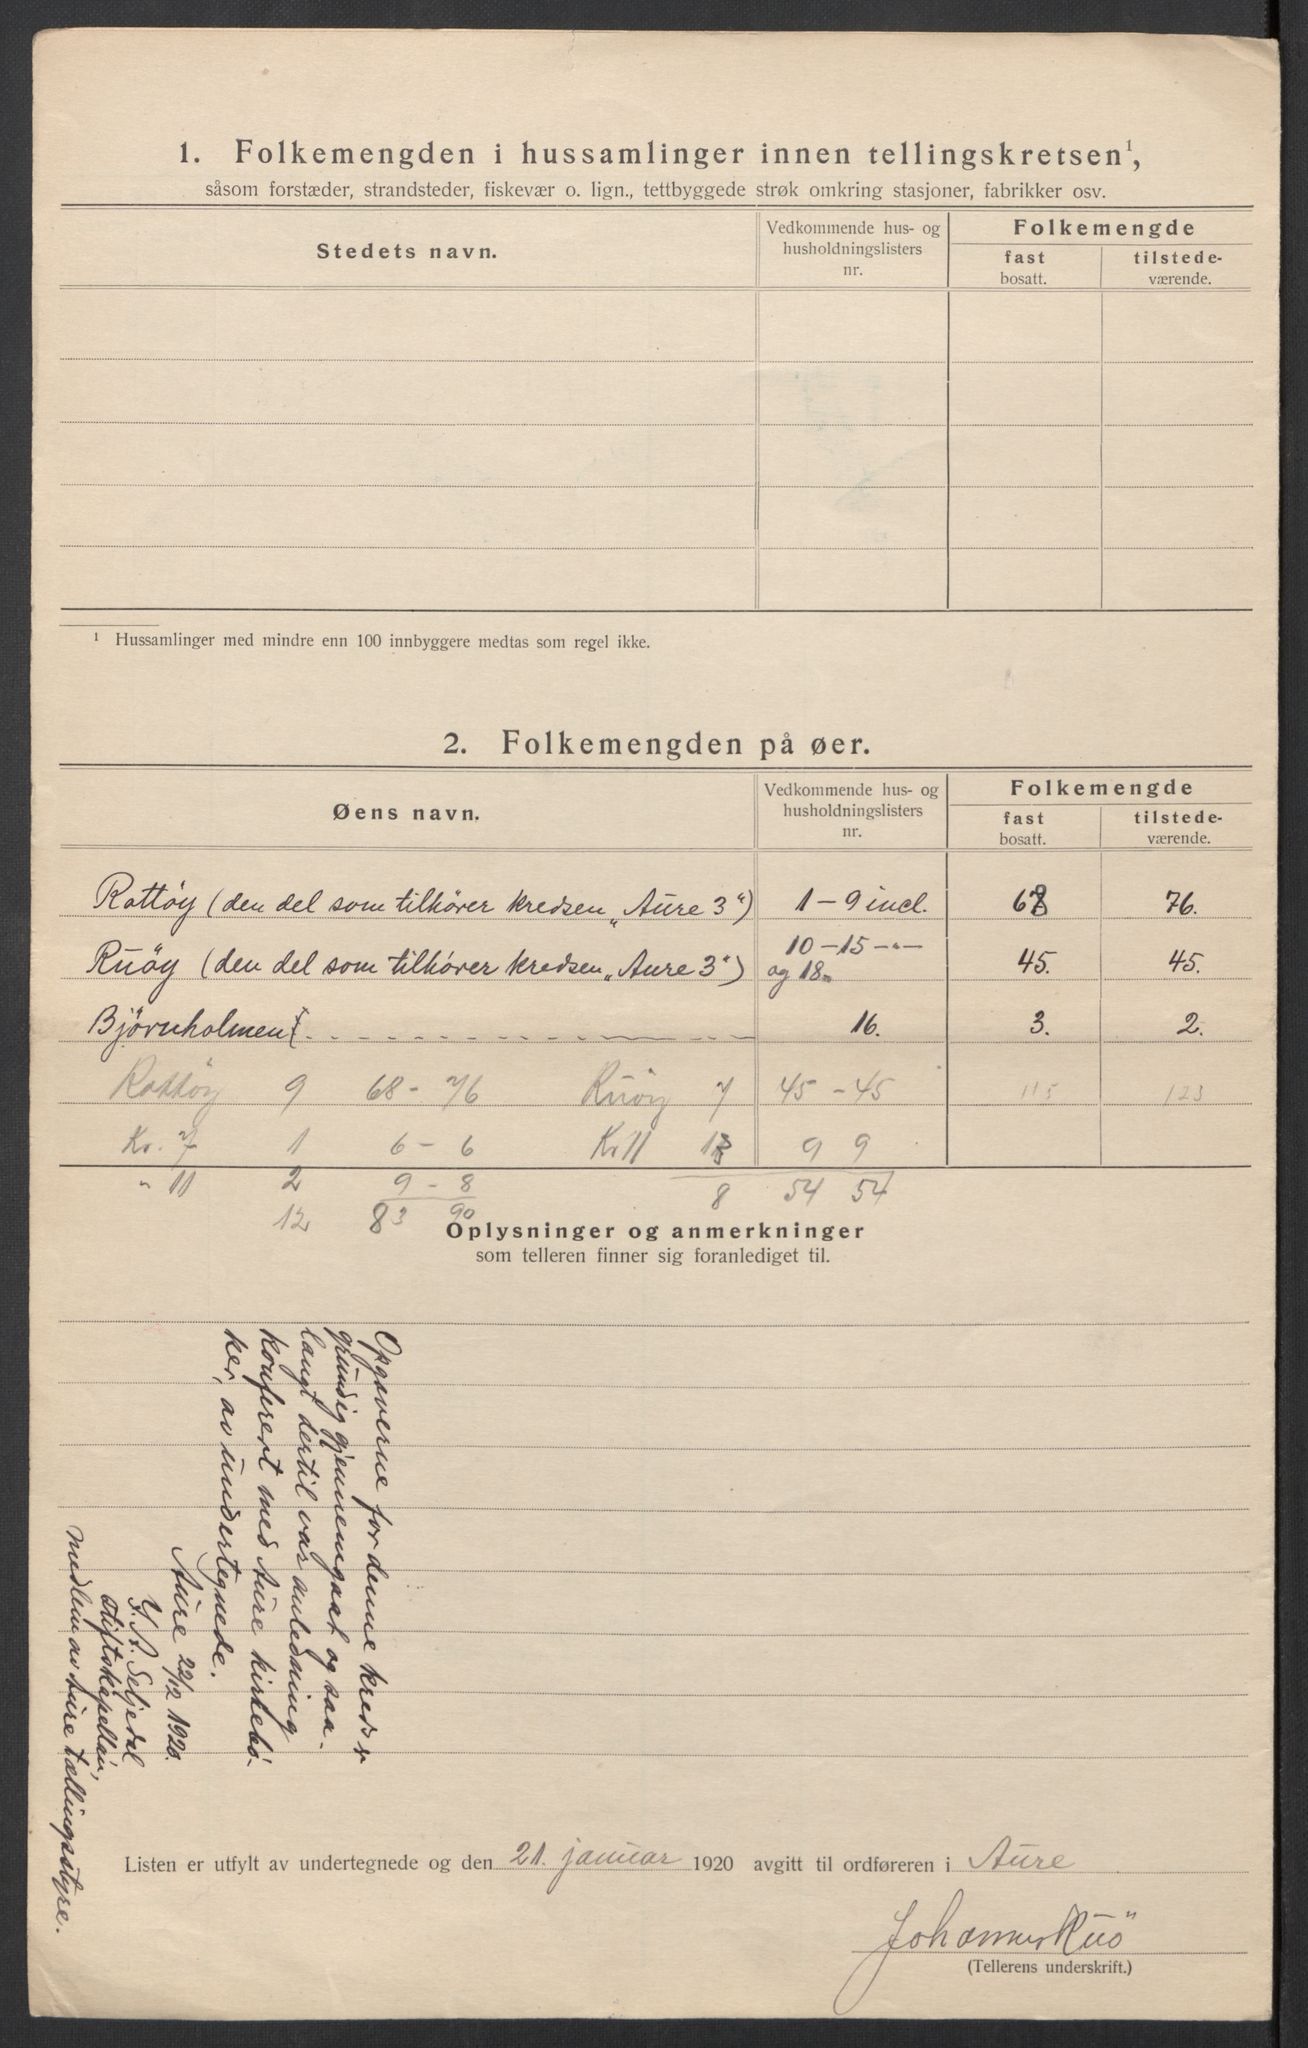 1. Folkemengden i hussamlinger innen tellingskretsen¹,
såsom forstæder, strandsteder, fiskevær o. lign., tettbyggede strøk omkring stasjoner, fabrikker osv.
Stedets navn. Vedkommende hus- og husholdningslisters nr. Folkemengde
fast bosatt. tilstede-værende.
¹ Hussamlinger med mindre enn 100 innbyggere medtas som regel ikke.
2. Folkemengden på øer.
Øens navn. Vedkommende hus- og husholdningslisters nr. Folkemengde
fast bosatt. tilstede-værende.
Rottøy (den del som tilhører kredsen „Aure 3") 1 – 9 incl. 68 76.
Ruöy (den del som tilhører kredsen „Aure 3") 10 – 15 -"- og 18. 45. 45.
Bjørnholmen 16. 3. 2.
Rottöy 9 68 - 76 Ruöy 7 45 - 45 115 123
Kr. 7 1 6 - 6 Kr 11 1 9 9
" 11 2 9 - 8 8 54 54
12 83 90
Oplysninger og anmerkninger
som telleren finner sig foranlediget til.
Opgaverne for denne kreds er
grundig gjennemgaat og saa-
langt dertil var anledning
konferert med Aure kirkebö-
ker, av undertegnede.
Aure 22/12 1920.
Y. A. Seljedal
stiftskapellan,
medlem av Aure tællingsstyre.
Listen er utfylt av undertegnede og den 21. januar 1920 avgitt til ordføreren i Aure
Johannes Ruö
(Tellerens underskrift.)